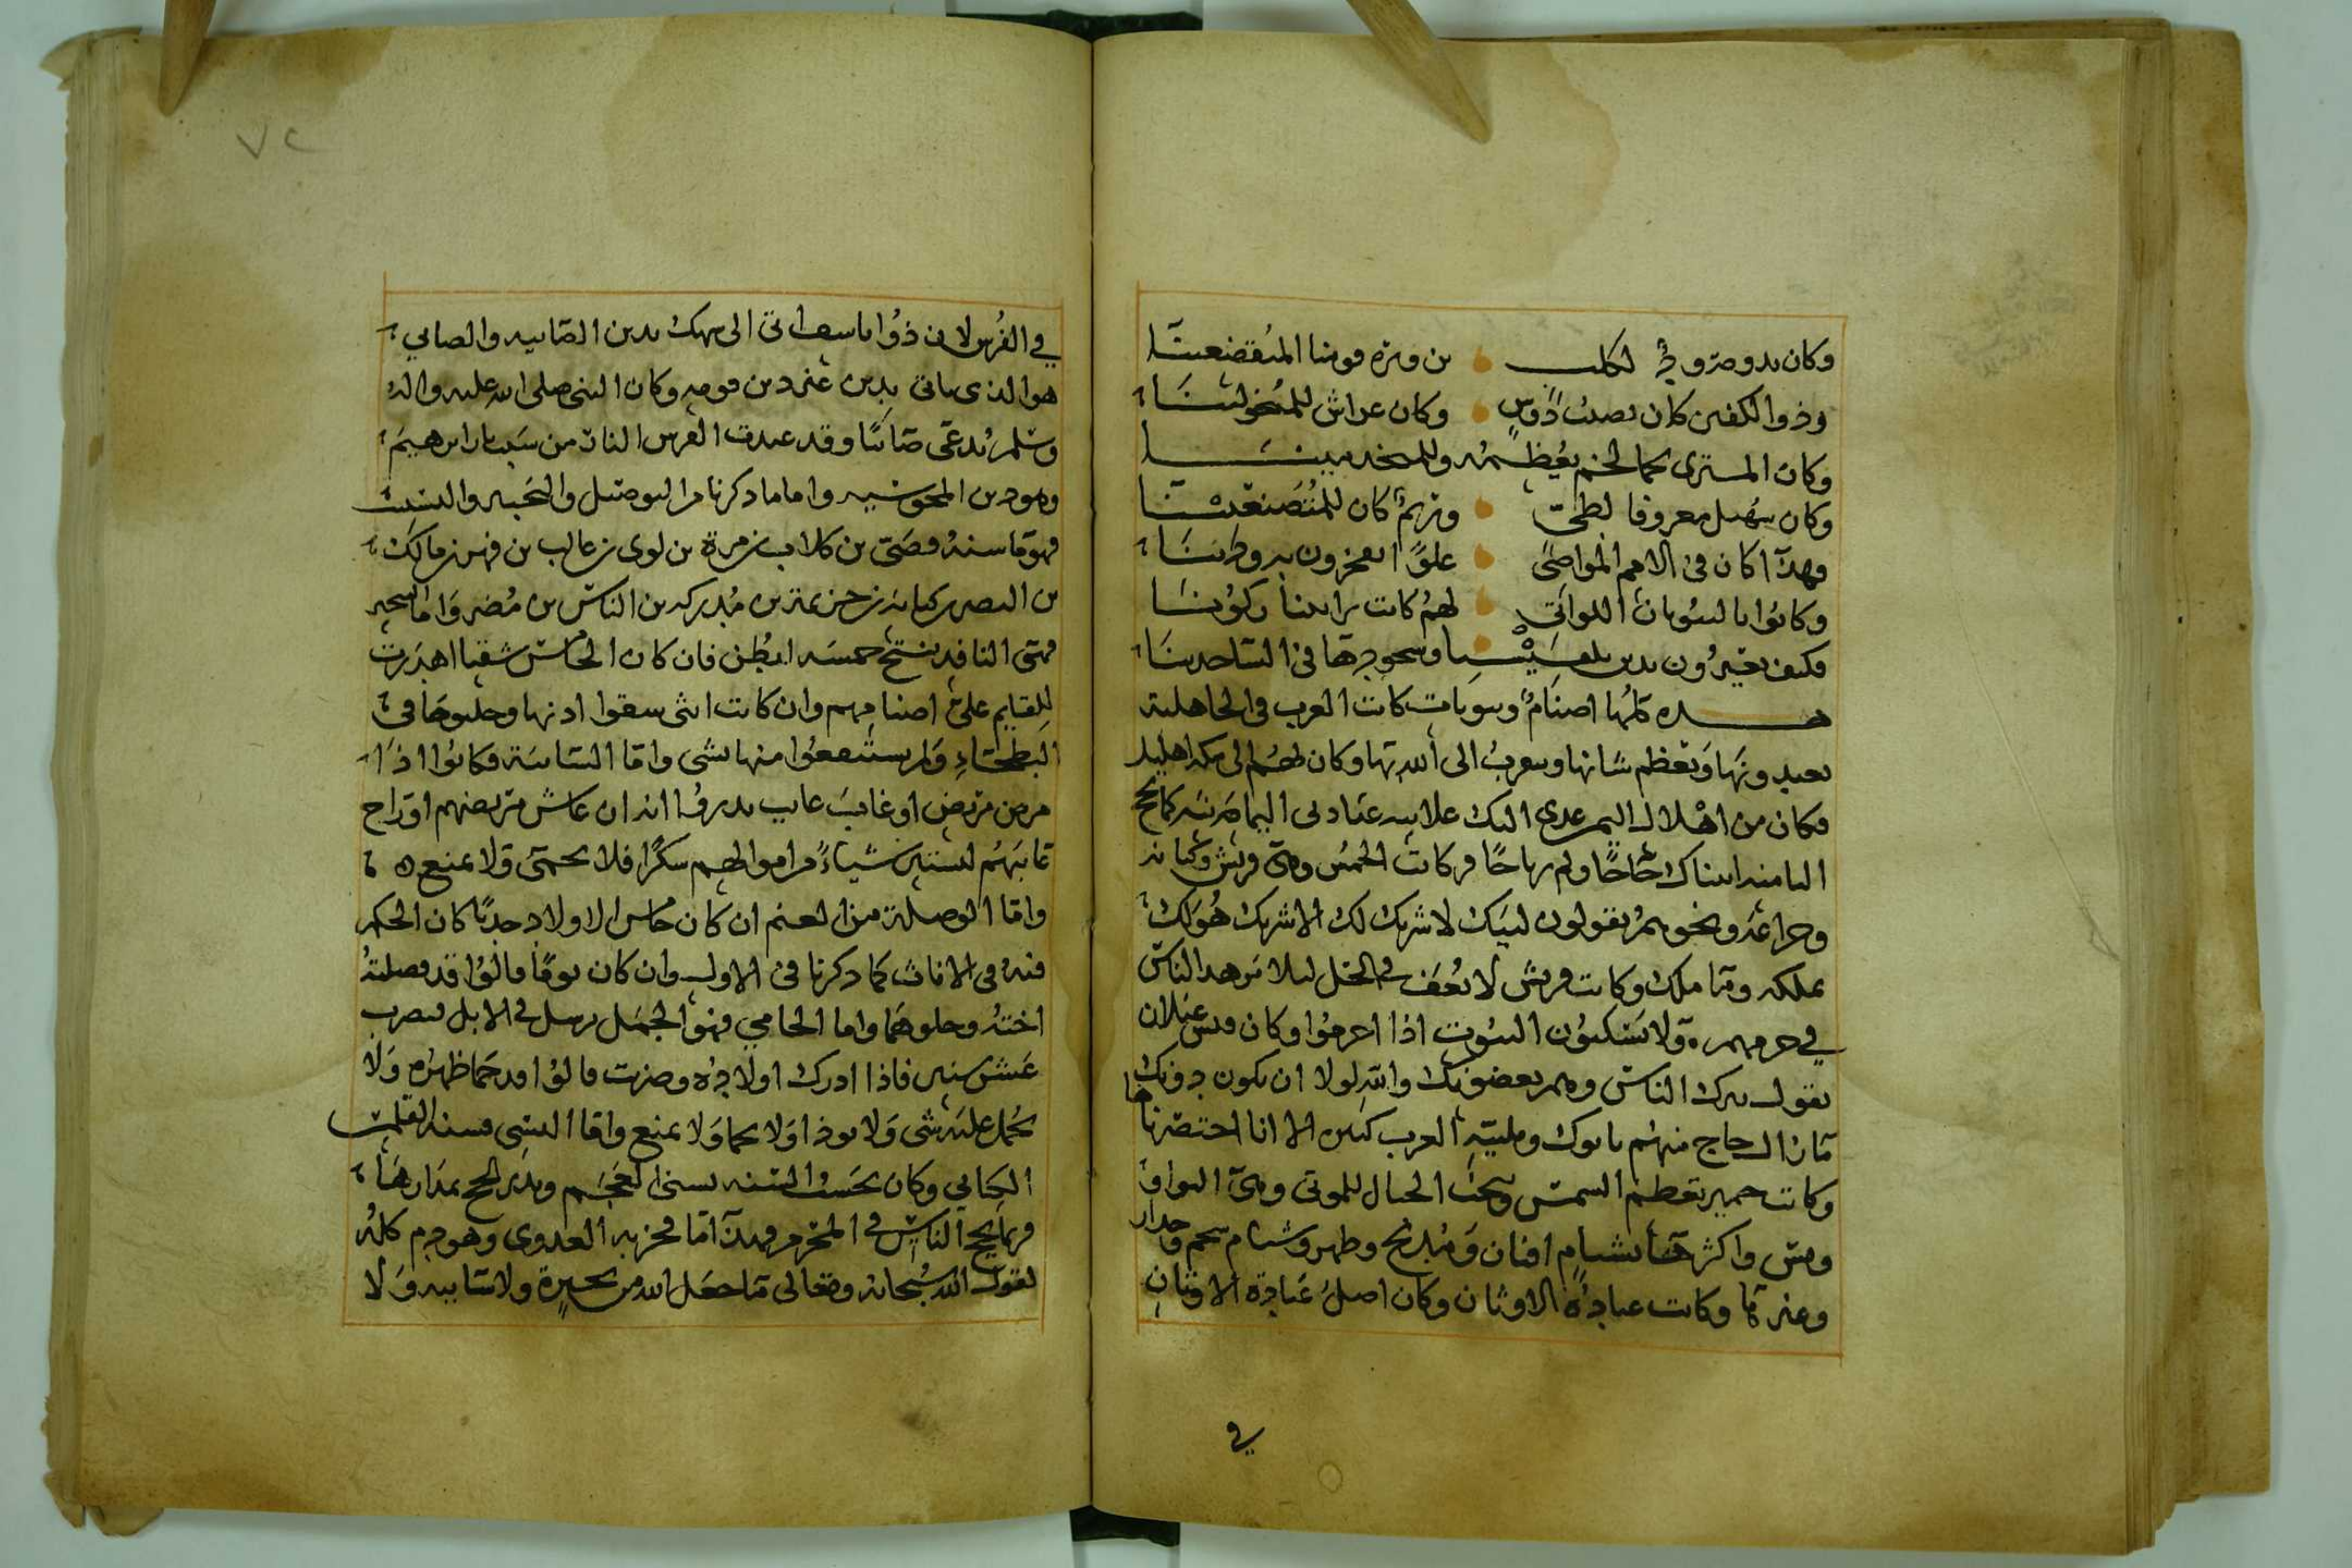 وكان بدومة ود لكلب بن وبرة قومنا المتقضعينا
وذوا الكفين كان لصلت دوس وكان عداش للمتخولينا
وكان المسترى كما لخم يعظمه وللمتخدمينا
وكان سهيل معروفا لطي وتريم كان للمتصنعينا
فهذا كان في الامم المواضي علوا يفخرون به وطينا
وكانوا بالبيوبات اللواتي لهم كانت براينا ركوبنا
فكيف يغيرون بدين بلقيس وسجودها في الساجدينا
هذه كلها اصنام وبيوبات كانت العرب في الجاهلية
يعبدونها وتعظم شانها ويتقرب الى الله بها وكان لهم الى مكة اهليل
فكان من اهلال اليمن عدي اليك علانيه عباد لى اليمانيه كما نحج
الثامنه اتيناك حاحا ولم رباحا وكانت الحمس وهي قريش وكنانه
وخزاعة ونحوهم يقولون لبيك لا شريك لك الا شريك هو لك
تملكه وما ملك وكانت قريش لا تقف في الحل ليلا توهد الناس
في حرمهم ولا يسكنون البيوت اذا احرموا وكان قيس عيلان
يقول يترك الناس وهم بعضونك والله لولا ان يكون دونك
ما زال حاج منهم ياتوك وتلبية العرب كثير الا انا اختصرناها
وكانت حمير تعظم الشمس وتنحت الجبال للموتى وهي النواويس
ومس واكثرها بشبام افيان ومذبح وظهر وشبام سحم وجدار
وعنرما وكانت عبادة الاوثان وكان اصل عبادة الاوثان
في
٧٢
في الفرس لان ذوا اسف اتى الى بهك بدين الصابيه والصابي
هو الذي ياتي بدين غير دين قومه وكان النبي صلى الله عليه واله
وسلم يدعى صابيا وقد عبدت الفرس النار من سبب نار ابرهيم
وهو دين المجوسيه واما ما ذكرنا من الوصيل والبحيره والنسيئ
فهو ما سنه قصي بن كلاب بن مرة بن لوى بن غالب بن فهر بن مالك
بن النضر بن كنانه بن خزيمة بن مدركه بن الناس بن مضر واما البحيره
فهي الناقه ينتج خمسه ابطن فان كان الخامس سقبا اهدرت
للقايم على اصنامهم وان كانت انثى سقوا اذنها وخلوها في
البطحاء ولم يستنفعوا منها بشي واما السايبة فكانوا اذا
مرض مريض او غاب غايب نذروا انه ان عاش مريضهم او راح
غايبهم لسنتين شياء من اموالهم سكرا فلا يحمى ولا يمنع
واما الوصيلة من الغنم ان كان خامس الاولاد جديا كان الحكم
فيه في الاناث كما ذكرنا في الاول وان كان توما قالوا قد وصلته
اخته وخلوهما واما الحامي فهو الجمل يرسل في الابل فيضرب
عشر سنين فاذا ادرك اولاده وضربت قالوا قد حما ظهره ولا
يحمل عليه شي ولا يوذا ولا يحما ولا يمنع واما النسي فسنه القلمس
الكناني وكان يحسب السنه بسني العجم ويدير الحج بمدارها
فربما يحج الناس في المحرم فهذا ما فخر به العدوى وهو جرم كله
لقول الله سبحانه وتعالى ما جعل الله من بحيرة ولا سايبه ولا